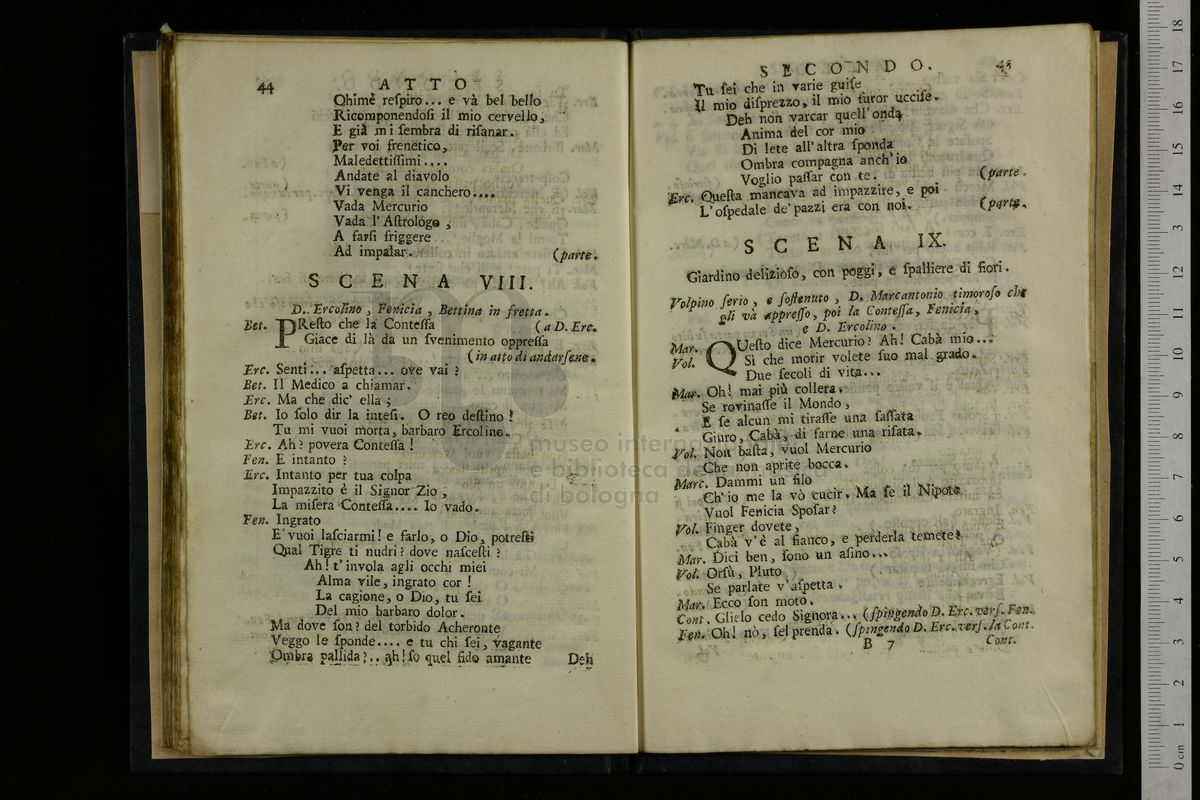 44
ATTO
Ohimè reſpiro... e và bel bello
Ricomponendoſi il mio cervello,
E già mi ſembra di riſanar.
Per voi frenetico,
Maledettiſſimi....
Andate al diavolo
Vi venga il canchero....
Vada Mercurio
Vada l'Aſtrologo,
A farſi friggere
Ad impalar. (parte.
SCENA VIII.
D. Ercolino, Fenicia, Bettina in fretta.
Bet. PReſto che la Conteſſa (a D. Erc.
Giace di là da un ſvenimento oppreſſa
(in atto di andarſene.
Erc. Senti... aſpetta... ove vai?
Bet. Il Medico a chiamar.
Erc. Ma che dic' ella;
Bet. Io ſolo dir la inteſi. O reo deſtino!
Tu mi vuoi morta, barbaro Ercolino.
Erc. Ah? povera Conteſſa!
Fen. E intanto?
Erc. Intanto per tua colpa
Impazzito è il Signor Zio,
La miſera Conteſſa.... Io vado.
Fen. Ingrato
E' vuoi laſciarmi! e farlo, o Dio, potreſti
Qual Tigre ti nudrì? dove naſceſti?
Ah! t'invola agli occhi miei
Alma vile, ingrato cor!
La cagione, o Dio, tu ſei
Del mio barbaro dolor.
Ma dove ſon? del torbido Acheronte
Veggo le ſponde.... e tu chi ſei, vagante
Ombra pallida?.. ah! ſo quel fido amante
Deh
SECONDO.
45
Tu ſei che in varie guiſe
Il mio diſprezzo, il mio furor ucciſe.
Deh non varcar quell'onda
Anima del cor mio
Di lete all'altra ſponda
Ombra compagna anch'io
Voglio paſſar con te. (parte.
Erc. Queſta mancava ad impazzire, e poi
L'oſpedale de' pazzi era con noi. (parte.
SCENA IX.
Giardino delizioſo, con poggi, e ſpalliere di fiori.
Volpino ſerio, e ſoſtenuto, D. Marcantonio timoroſo che
gli và appreſſo, poi la Conteſſa, Fenicia,
e D. Ercolino.
Mar. QUeſto dice Mercurio? Ah! Cabà mio...
Vol. Sì che morir volete ſuo mal grado.
Due ſecoli di vita...
Mar. Oh! mai più collera.
Se rovinaſſe il Mondo,
E ſe alcun mi tiraſſe una ſaſſata
Giuro, Cabà, di farne una riſata.
Vol. Non baſta, vuol Mercurio
Che non aprite bocca.
Marc. Dammi un filo
Ch'io me la vò cucir. Ma ſe il Nipote
Vuol Fenicia Spoſar?
Vol. Finger dovete,
Cabà v'è al fianco, e perderla temete?
Mar. Dici ben, ſono un aſino...
Vol. Orſù, Pluto
Se parlate v'aſpetta.
Mar. Ecco ſon moto.
Cont. Glielo cedo Signora... (ſpingendo D. Erc. verſ. Fen.
Fen. Oh! nò, ſel prenda. (ſpingendo D. Erc. verſ. la Cont.
B 7
Cont.
museo interna
e biblioteca de
di bologna